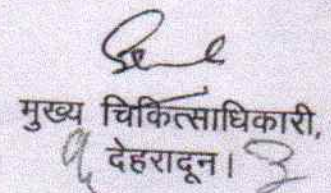 मुख्य चिकित्साधिकारी,
देहरादून।